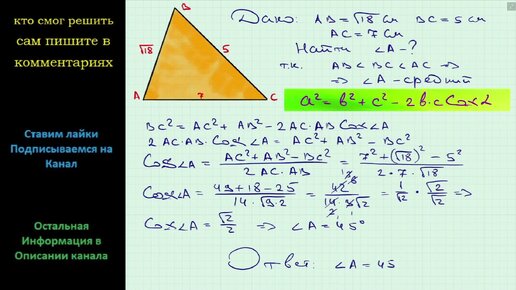 кто смог решить
сам пишите в
комментариях
Ставим лайки
Подписываемся на
Канал
Остальная
Информация в
Описании канала
B
√18
5
A
7
C
Дано: AB = √18 см BC = 5 см
AC = 7 см
Найти ∠A - ?
т.к. AB < BC < AC ⇒
⇒ ∠A - средний
a² = b² + c² - 2b·c Cos α
BC² = AC² + AB² - 2AC·AB Cos∠A
2AC·AB·Cos∠A = AC² + AB² - BC²
Cos∠A = (AC² + AB² - BC²)/(2AC·AB) = (7² + (√18)² - 5²)/(2·7·√18)
Cos∠A = (49 + 18 - 25)/(14·√9·2) = 42/(14·3√2) = 1/√2 · √2/√2 ⇒
Cos∠A = √2/2 ⇒ ∠A = 45°
Ответ: ∠A = 45